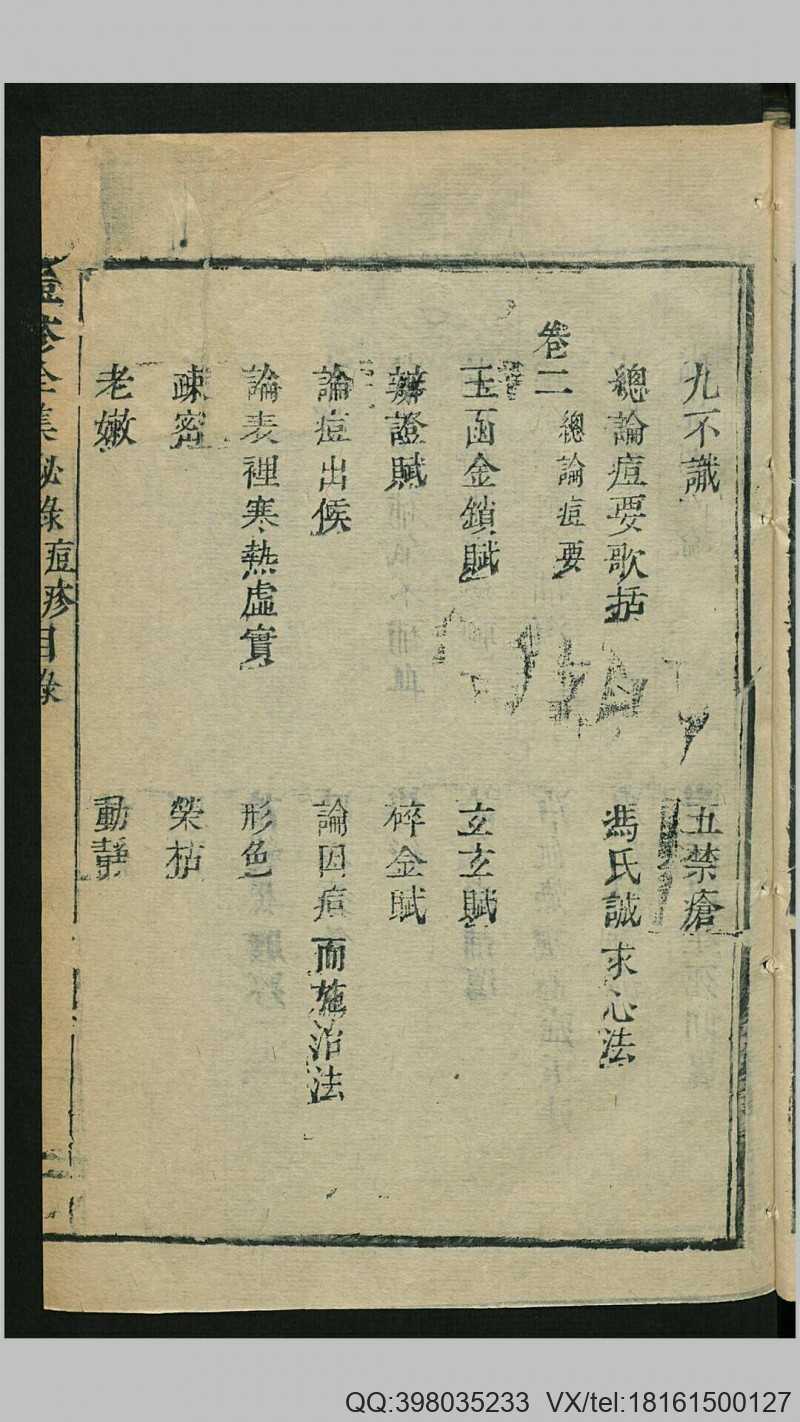 九不識　五禁瘡
總論痘要歌括　馮氏誠求心法
卷二　總論痘要
玉函金鎖賦　玄玄賦
辨證賦　碎金賦
論痘出候　論因痘而施治法
論表裡寒熱虛實　形色
疎密　榮枯
老嫩　動靜
痘疹全集秘錄痘疹目錄
QQ:398035233 VX/tel:18161500127